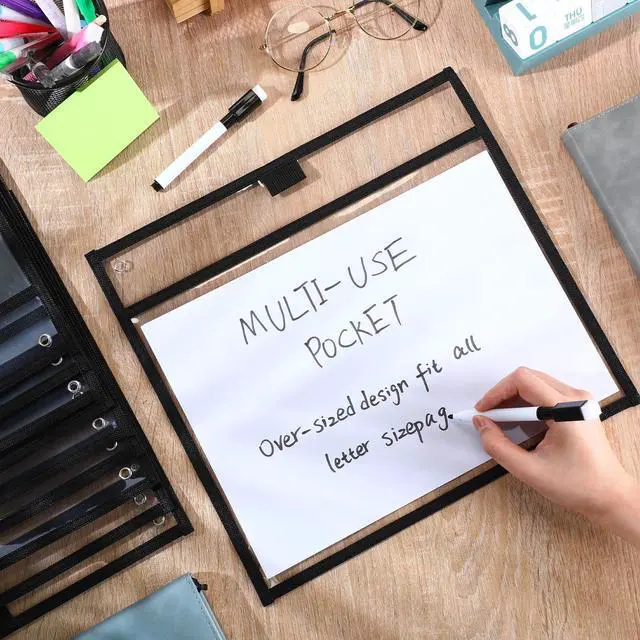 MULTI-USE
POCKET
Over-sized design fit all
letter sizepag.
THU